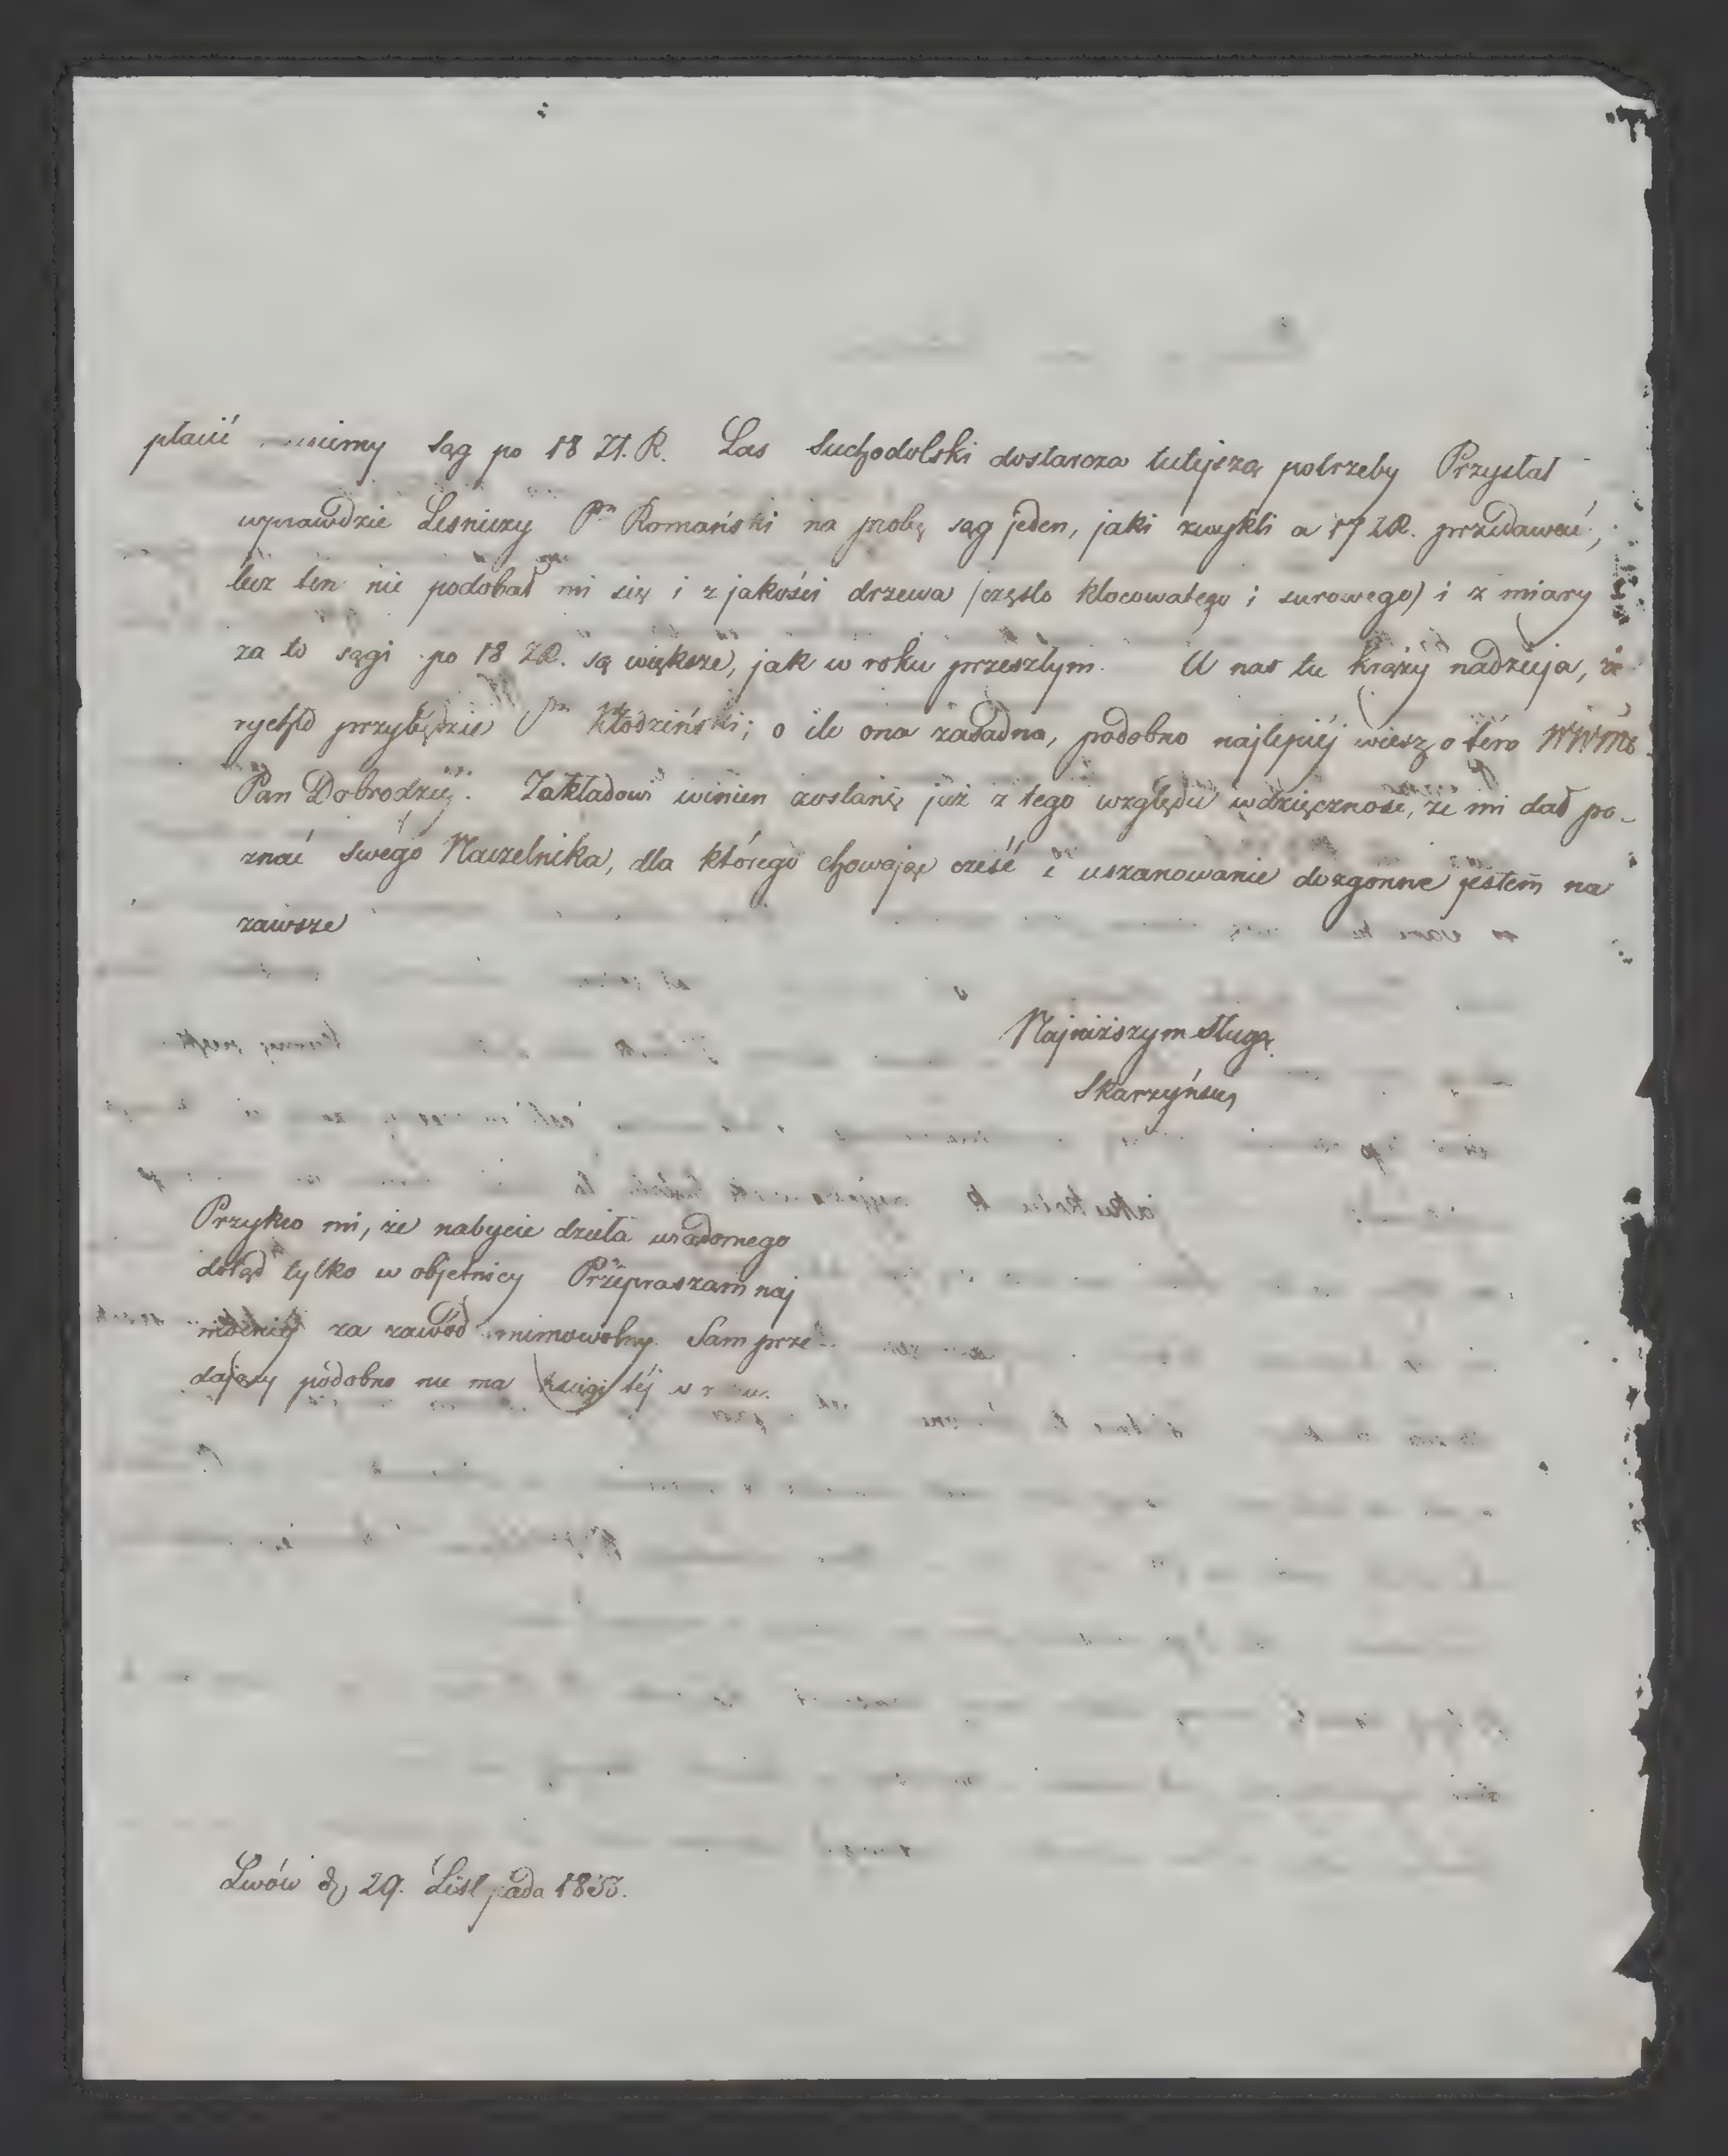 płacić musimy sąg po 18 Zł. R. Las Suchodolski dostarcza tutejszą potrzeby Przysłał
wprawdzie Leśniczy Pn Romański na próbę sąg jeden, jaki zwykli a 17 ZR. przedawać,
lecz ten nie podobał mi się i z jakości drzewa (często klocowatego i surowego) i z miary
za to sągi po 18 ZR. są większe, jak w roku przeszłym. U nas tu krąży nadzieja, że
rychło przybędzie Pn Kłodziński; o ile ona zasadna, podobno najlepiéj wiesz o tém WWMć
Pan Dobrodziéj. Zakładowi winien zostanę już z tego względu wdzięczność, że mi dał po-
znać swego Naczelnika, dla którego chowając cześć i uszanowanie dozgonne jestem na
zawsze
Najniższym sługą
Skarzyński
Przykro mi, że nabycie dzieła wiadomego
dotąd tylko w objetnicy Przepraszam naj
mocniéj za zawód mimowolny. Sam prze-
dający podobno nie ma księgi téj
Lwów d. 29. Listopada 1853.